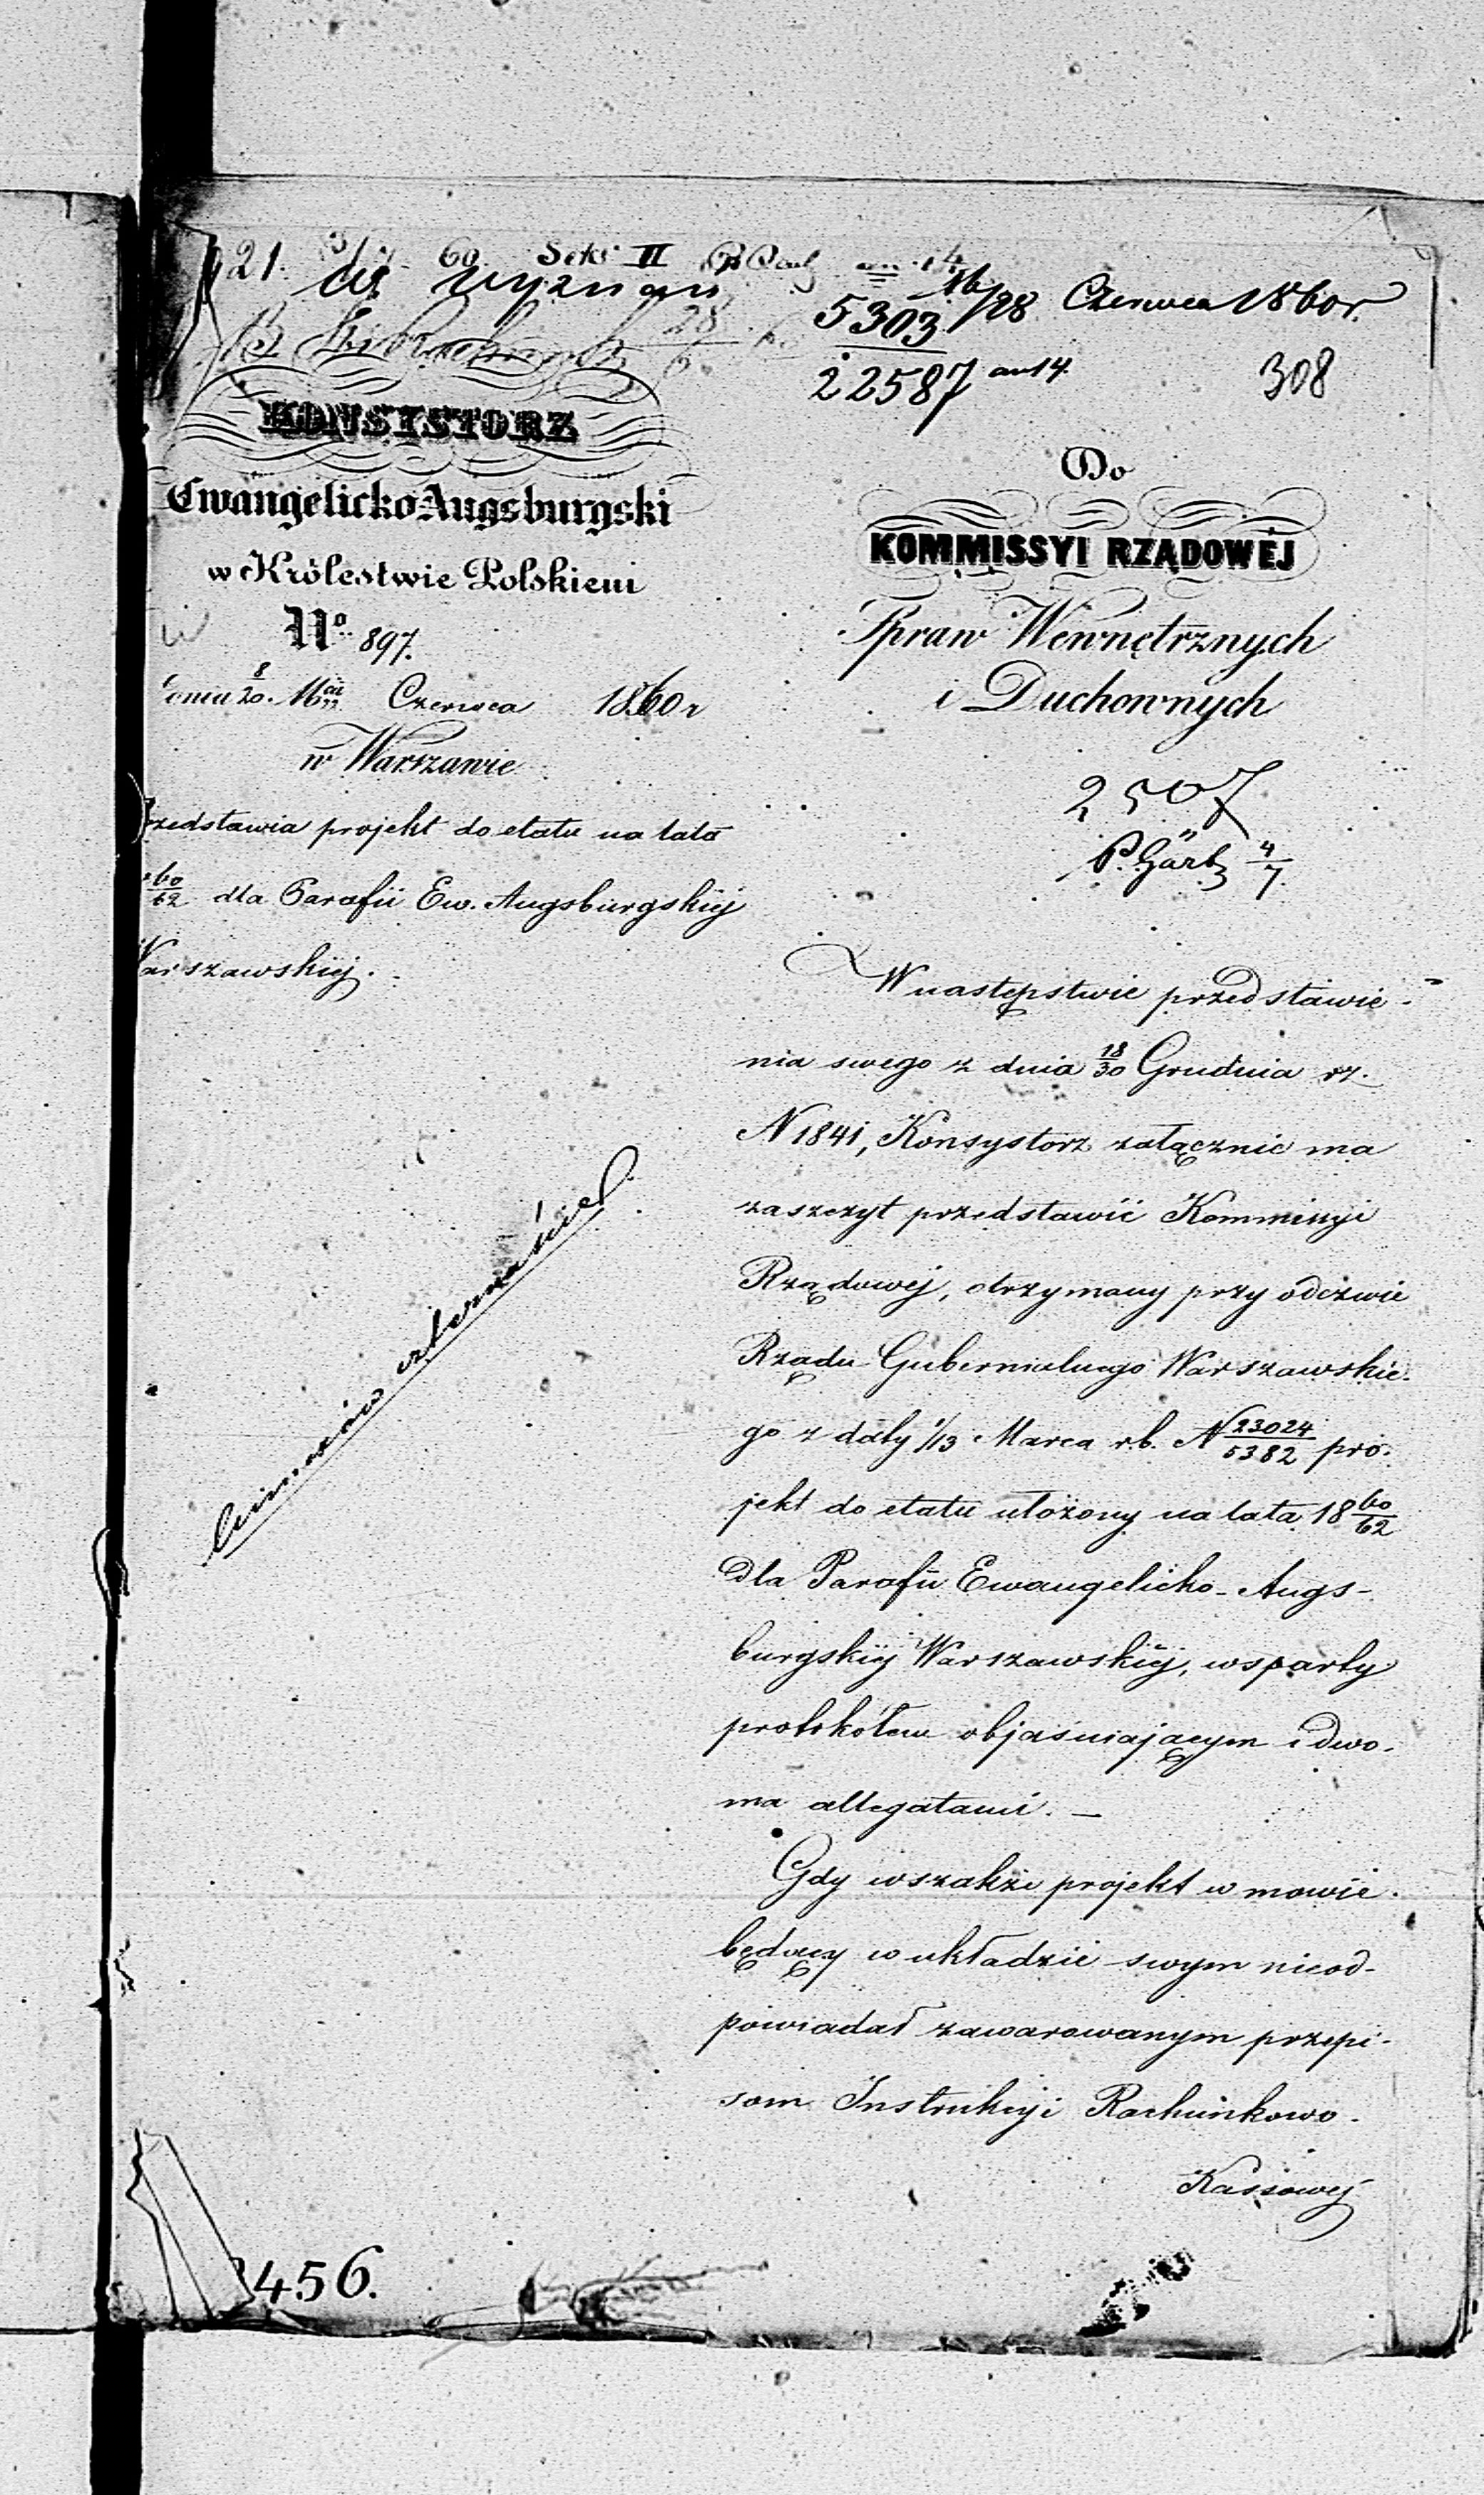 21. 60. Sek. II
do wyznań
5303 16/28 Czerwca 1860 r.
22587 an 14
308
KONSYSTORZ
Ewangelicko-Augsburgski
w Królestwie Polskiem
No. 897.
dnia 8/20. Mca Czerwca 1860 r
w Warszawie
Przedstawia projekt do etatu na lata
1860/62 dla Parafii Ew. Augsburgskiej
Warszawskiej.
Do
KOMMISSYI RZĄDOWÉJ
Spraw Wewnętrznych
i Duchownych
2507
P. Gärtz 4/7
W następstwie przedstawie-
nia swego z dnia 18/30 Grudnia rz.
N 1841, Konsystorz załącznie ma
zaszczyt przedstawić Kommissyi
Rządowéj, otrzymany przy odezwie
Rządu Gubernialnego Warszawskie-
go z daty 1/13 Marca r.b. N 23024/5382 pro-
jekt do etatu ułożony na lata 1860/62
dla Parafii Ewangelicko-Augs-
burgskiéj Warszawskiéj, wsparty
protokółem objaśniającym i dwo-
ma allegatami. —
Gdy wszakże projekt w mowie
będący w układzie swym nieod-
powiadał zawarowanym przepi-
som Instrukcyi Rachunkowo-
Kassowéj
456.